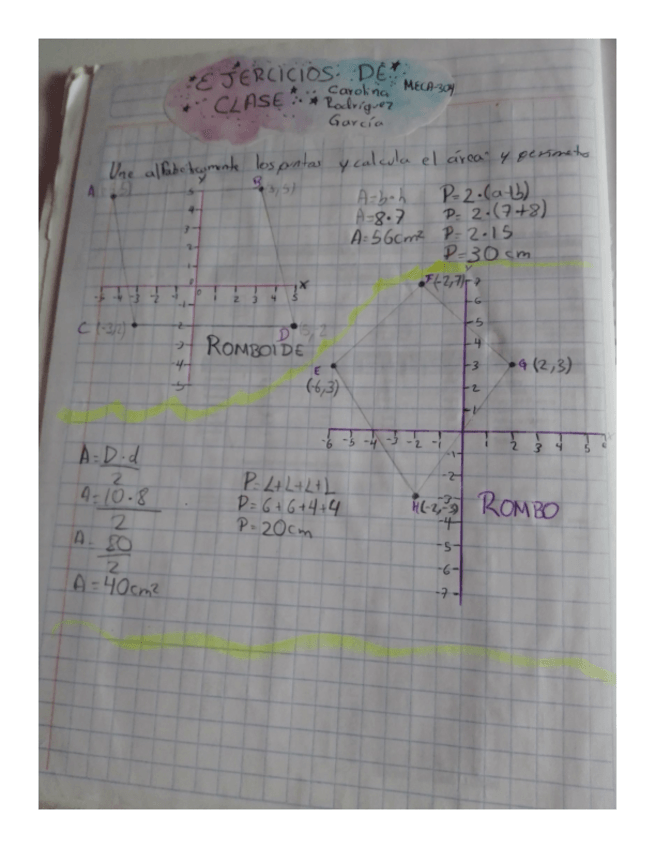 EJERCICIOS DE
CLASE
Carolina
Rodríguez
García
MECA-304
Une alfabeticamente los puntos y calcula el área y perímetro
A
B (3,5)
A=b·h
A=8·7
A=56cm²
P=2·(a+b)
P=2·(7+8)
P=2·15
P=30cm
y
5
4
3
2
1
x
-5 -4 -3 -2 -1 0 1 2 3 4 5
-1
-2
-3
-4
-5
C (-3,-2)
D
ROMBOIDE
y
F(-2,7)
7
6
5
4
3
2
1
E
(-6,3)
G (2,3)
-6 -5 -4 -3 -2 -1 1 2 3 4 5 6
-1
-2
-3
-4
-5
-6
-7
H(-2,-3)
ROMBO
A=D·d
2
A=10·8
2
A=80
2
A=40cm²
P=L+L+L+L
P=6+6+4+4
P=20cm